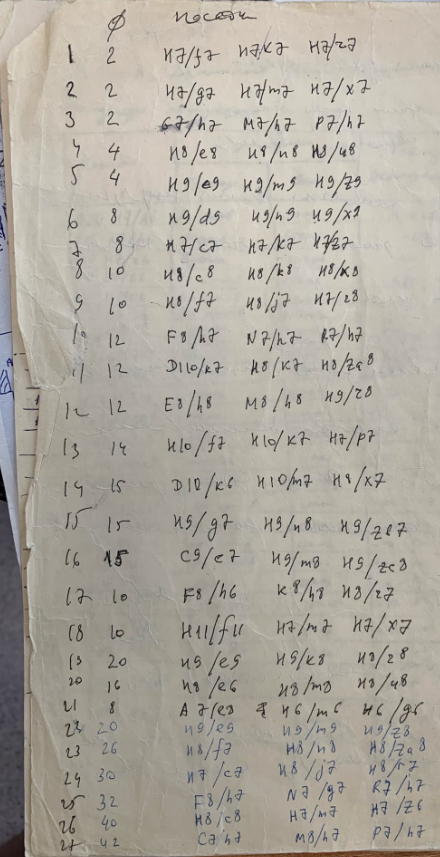 ϕ посадки
1 2 H7/f7 H7/k7 H7/r7
2 2 H7/g7 H7/m7 H7/x7
3 2 G7/h7 M7/h7 P7/h7
4 4 H8/e8 H8/n8 H8/u8
5 4 H9/e9 H9/m9 H9/z9
6 8 H9/d9 H9/n9 H9/x9
7 8 H7/c7 H7/k7 H7/z7
8 10 H8/c8 H8/k8 H8/x8
9 10 H8/f7 H8/j7 H7/z8
10 12 F8/h7 N7/h7 R7/h7
11 12 D10/k7 H8/k7 H8/za8
12 12 E8/h8 M8/h8 H9/z8
13 14 H10/f7 H10/k7 H7/p7
14 15 D10/k6 H10/m7 H8/x7
15 15 H9/g7 H9/n8 H9/zc7
16 15 C9/c7 H9/m8 H9/zc8
17 10 F8/h6 K8/h8 H8/z7
18 10 H11/f11 H7/m7 H7/x7
19 20 H9/e9 H9/k8 H8/z8
20 16 H8/e6 H8/m8 H8/u8
21 8 A7/e8 H6/m6 H6/g6
22 20 H9/e9 H9/m9 H9/z8
23 26 H8/f7 H8/n8 H8/za8
24 30 H7/c7 H8/j7 H8/r7
25 32 F8/h7 N7/g7 R7/h7
26 40 H8/c8 H7/m7 H7/z6
27 42 C7/h7 M8/h7 P7/h7